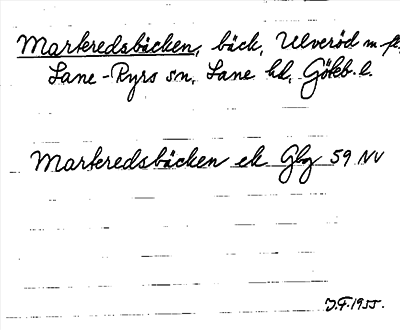 Markredsbäcken, bäck, Ulveröd m. fl.
Lane-Ryrs sn, Lane hd, Göteb. l.
Markredsbäcken ek Gbg 59 NV
J.F. 1955.